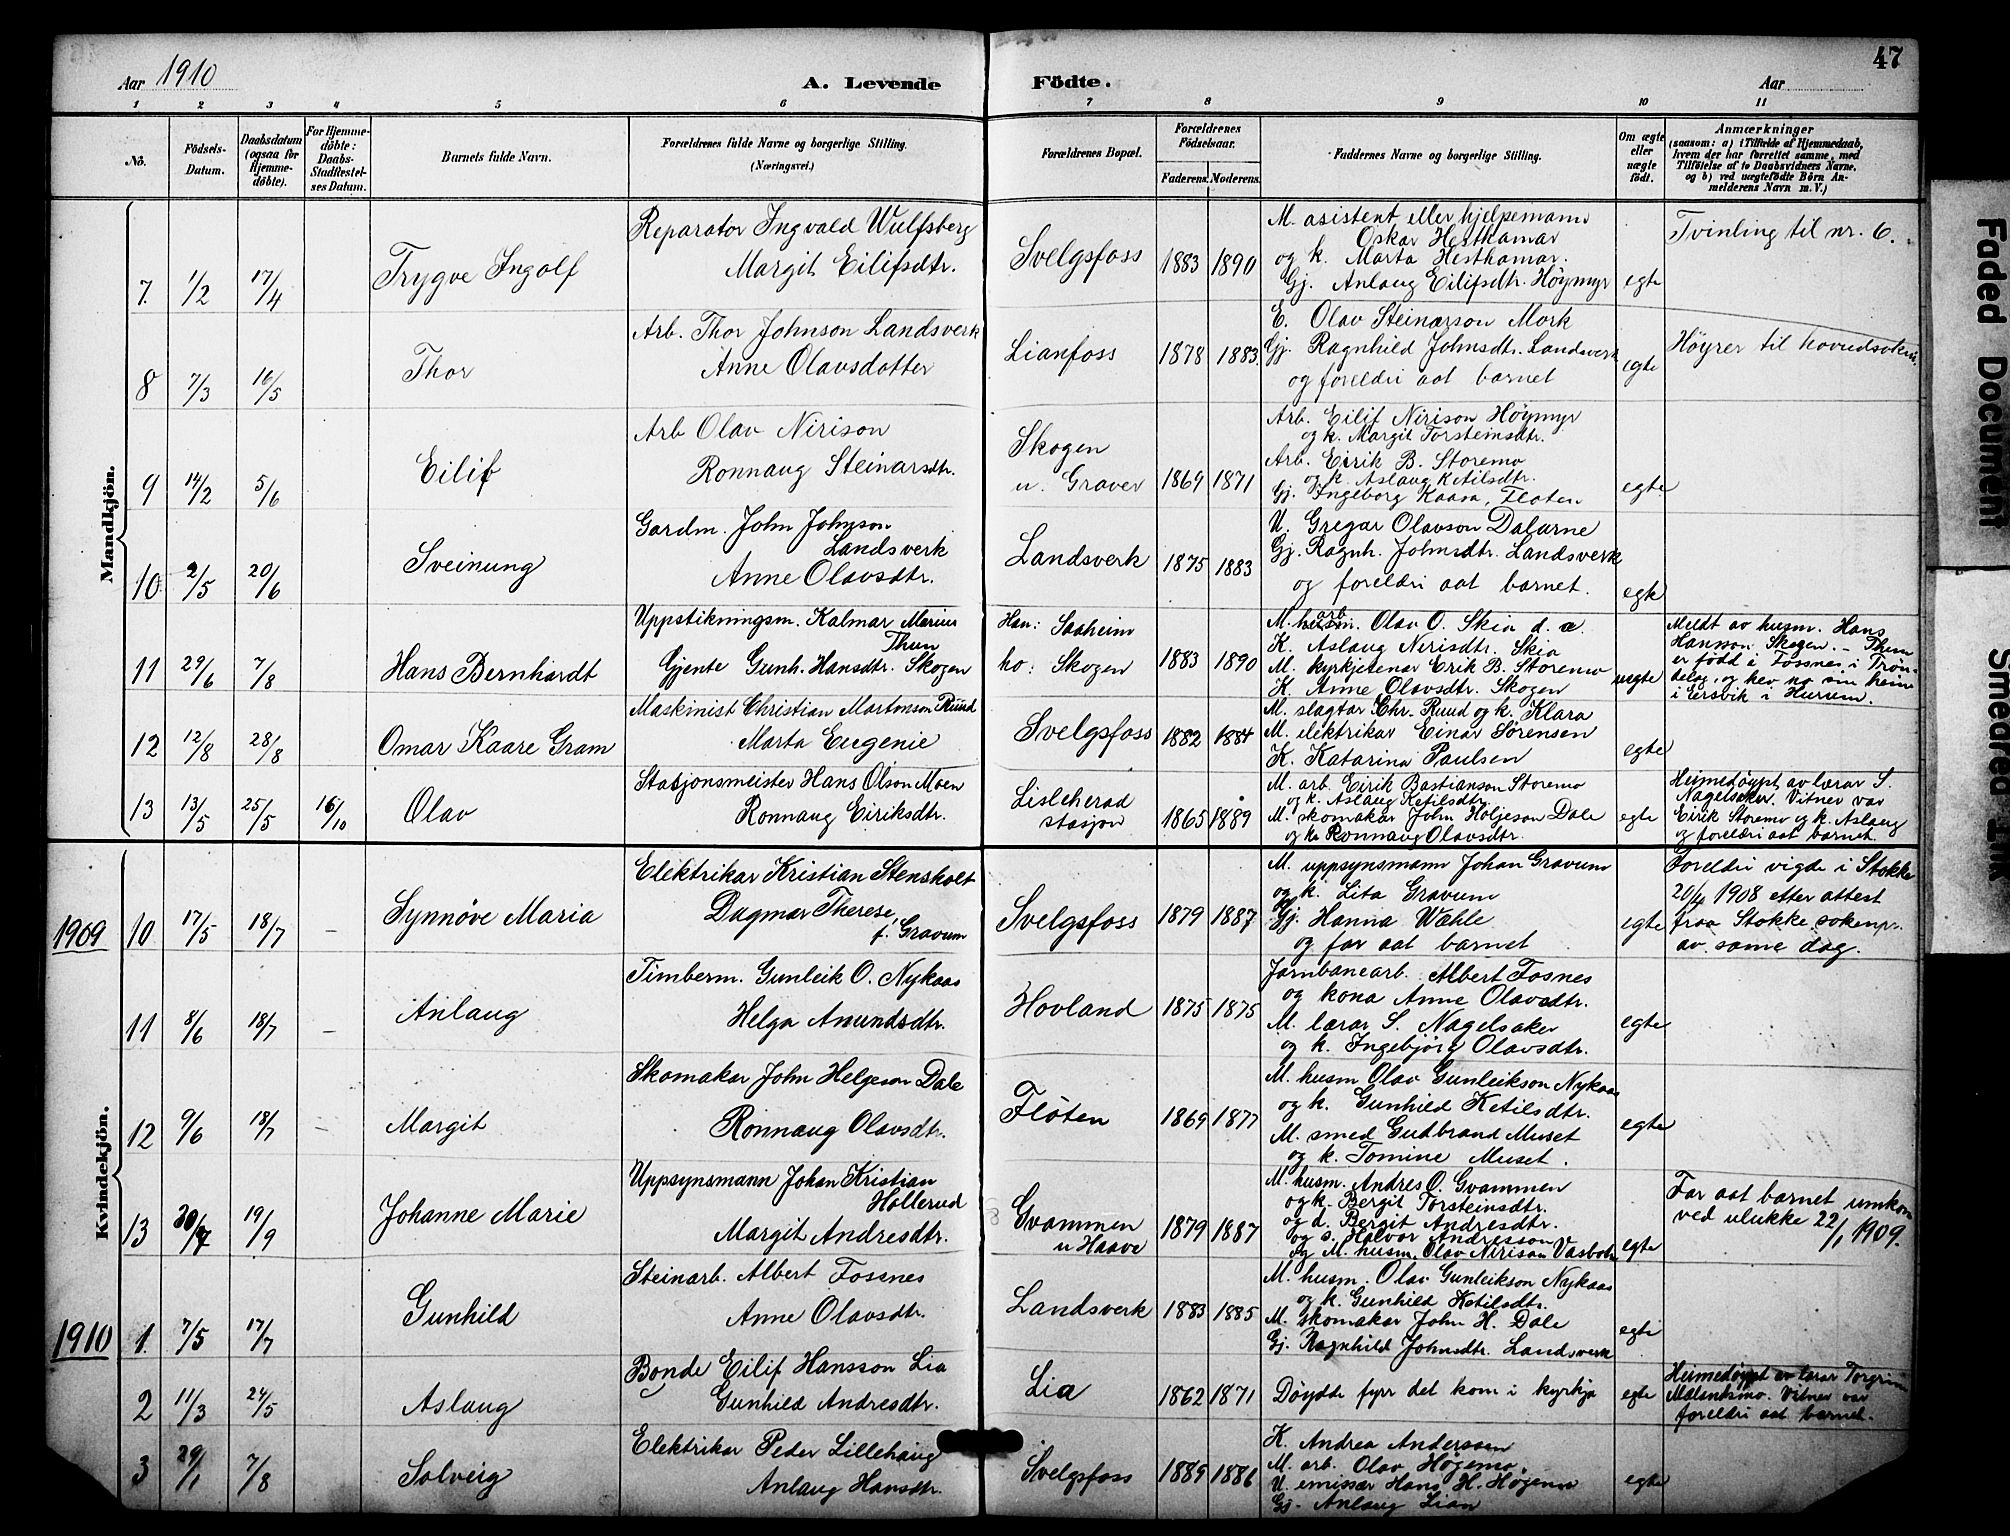 47
Aar 1910
A. Levende Födte.
Aar
1 2 3 4 5 6 7 8 9 10 11
No.
Födsels-Datum.
Daabsdatum (ogsaa for Hjemmedöbte).
For Hjemmedöbte: Daabs-Stadfestelses Datum.
Barnets fulde Navn.
Forældrenes fulde Navne og borgerlige Stilling. (Næringsvei.)
Forældrenes Bopæl.
Forældrenes Födselsaar.
Faderens. Moderens.
Faddernes Navne og borgerlige Stilling.
Om ægte eller uægte födt.
Anmærkninger
(saasom: a) i Tilfælde af Hjemmedaab, hvem der har forrettet samme, med Tilföielse af to Daabsvidners Navne, og b) ved uægtefödte Börn Anmelderens Navn m. V.)
Mandkjön.
7. 1/2 17/4 Trygve Ingolf
Reparator Ingvald Wulfsberg
Margit Eilifsdtr.
Svelgsfoss 1883 1890
M. asistent eller hjelpemann
Oskar Hesthamar
og k. Marta Hesthamar.
Gj. Anlaug Eilifsdtr. Höymyr
egte
Tvinling til nr. 6.
8 7/3 16/5 Thor
Arb. Thor Johnson Landsverk
Anne Olavsdotter
Lianfoss 1878 1883
E. Olav Steinarson Mork
Gj. Ragnhild Johnsdtr. Landsverk
og foreldri aat barnet
egte
Höyrer til hovudsokni.
9 14/2 5/6 Eilif
Arb Olav Nirison
Ronnaug Steinarsdtr.
Skogen
u. Graver 1869 1871
Arb. Eilif Nirison Höymyr
og k. Margit Torsteinsdtr.
Arb. Eirik B. Storemo
og k. Aslaug Ketilsdtr.
Gj. Ingeborg Kaasa, Floten
egte
10 2/5 20/6 Sveinung
Gardm. John Johnson
Landsverk
Anne Olavsdtr.
Landsverk 1875 1883
U. Gregar Olavson Dalarne
Gj. Ragnh. Johnsdtr. Landsverk
og foreldri aat barnet.
egte
11 29/6 7/8 Hans Bernhardt
Uppstikningsm. Kalmar Marius
Thun
Gjente Gunh. Hansdtr. Skogen
Han: Saaheim
ho: Skogen 1883 1890
M. arb. Olav O. Skia d. e.
K. Aslaug Nirisdtr. Skia
M. kyrkjetenar Erik B. Storemo
K. Anne Olavsdtr. Skogen
uegte
Meldt av husm. Hans
Hansson Skogen. – Thun
er född i Fossnes i Trön-
delag, og hev no sin heim
i Eersvik i Hurum.
12 12/8 28/8 Omar Kaare Gram
Maskinist Christian Martinson Ruud
Marta Eugenie
Svelgsfoss 1882 1884
M. slagtar Chr. Ruud og k. Klara
M. elektrikar Einar Sörensen
K. Katarina Paulsen
egte
13 13/5 25/5 16/10 Olav
Stasjonsmeister Hans Olson Moen
Ronnaug Eiriksdtr.
Lisleherad
stasjon 1865 1889
M. arb. Eirik Bastianson Storemo
og k. Aslaug Ketilsdtr.
M. skomakar John Holjeson Dale
og k. Ronnaug Olavsdtr.
egte
Heimedöypt av lærar S.
Nagelsaker. Vitner var
Eirik Storemo og k. Aslaug
og foreldri aat barnet.
Kvindekjön.
1909
10 17/5 18/7 – Synnöve Maria
Elektrikar Kristian Stensholt
Dagmar Therese,
f. Gravum
Svelgsfoss 1879 1887
M. uppsynsmann Johan Gravum
og k. Lita Gravum
Gj. Hanna Wahle
og far aat barnet
egte
Foreldri vigde i Stokke
20/4 1908 etter attest
fraa Stokke sokenpr.
av same dag.
11 8/6 18/7 – Anlaug
Timberm. Gunleik O. Nykaas
Helga Amundsdtr.
Hovland 1875 1875
Jarnbanearb. Albert Fosnes
og kona Anne Olavsdtr.
M. lærar S. Nagelsaker
og k. Ingebjörg Olavsdtr.
egte
12 9/6 18/7 – Margit
Skomakar John Helgeson Dale
Ronnaug Olavsdtr.
Flöten 1869 1877
M. husm Olav Gunleikson Nykaas
og k. Gunhild Ketilsdtr.
M. smed Gudbrand Muset
og k. Tomine Muset.
egte
13 30/7 19/9 Johanne Marie
Uppsynsmann Johan Kristian
Hollerud
Margit Andresdtr.
Gvammen
u Haave 1879 1887
M. husm. Andres O. Gvammen
og k. Bergit Torsteinsdtr.
og d. Bergit Andresdtr.
og s. Halvor Andresson
og M. husm. Olav Nirison Vasbotn
egte
Far aat barnet umkom
ved ulukke 22/1 1909.
1910
1. 7/5 17/7 Gunhild
Steinarb. Albert Fossnes
Anne Olavsdtr.
Landsverk 1883 1885
M. husm. Olav Gunleikson Nykaas
og k. Gunhild Ketilsdtr.
M. skomakar John H. Dale
Gj. Ragnhild Johnsdtr. Landsverk
egte
2 11/3 24/5 Aslaug
Bonde Eilif Hansson Lia
Gunhild Andresdtr.
Lia 1862 1871
Döydde fyrr det kom i kyrkja
egte
Heimedöypt av lærar Torgrim
Vitner var
foreldri aat barnet.
3 29/1 7/8 Solveig
Elektrikar Peder Lillehaug
Anlaug Hansdtr.
Svelgsfoss 1885 1886
K. Andrea Anderssen
M. arb. Olav Högemo.
U. emissær Hans H. Högemo
Gj. Anlaug Lian
egte
Faded Document
Smeared Ink